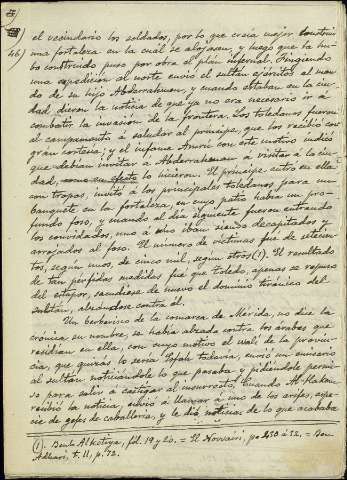 46)
el vecindario los soldados, por lo que creía mejor construir
una fortaleza en la cual se alojasen, y luego que la hu-
bo construido puso por obra el plan infernal. Fingiendo
una expedición al norte envió el sultán ejércitos al man-
do de su hijo Abderrahmen, y cuando estaban en la ciu-
dad dieron la noticia de que ya no era necesario ir á
combatir la invasión de la frontera. Los toledanos fueron
al campamento á saludar al príncipe, que los recibió con
gran cortesía; y el infame Amrú con este motivo indicó
que debían invitar á Abderrahmen á visitar á la ciu-
dad, como en efecto lo hicieron. El príncipe entró en ella
con tropas, invitó á los principales toledanos para un
banquete en la fortaleza, en cuyo patio había un pro-
fundo foso, y cuando al día siguiente fueron entrando
los convidados, uno á uno iban siendo decapitados y
arrojados al foso. El número de víctimas fué de setecien-
tos, según unos, de cinco mil, según otros (1). El resultado
de tan pérfidas medidas fué que Toledo, apenas se repuso
del estupor, sacudiese de nuevo el dominio tiránico del
sultán, alzándose contra él.
Un berberisco de la comarca de Mérida, no dice la
crónica su nombre, se había alzado contra los árabes que
residían en ella, con cuyo motivo el walí de la provin-
cia, que quizás lo sería Yopah todavía, envió un emisario
al sultán noticiándole lo que pasaba y pidiéndole permi-
so para salir á castigar al insurrecto. Cuando Al-Hakem
recibió la noticia, envió á llamar á uno de los arifes, espe-
cie de gefes de caballería, y le dió noticias de lo que acababa
(1). Benlo Alkotiya, fol. 19 y 20. = El Nowairi, pa 450 á 52. = Ben
Adhari, t. II, p. 72.